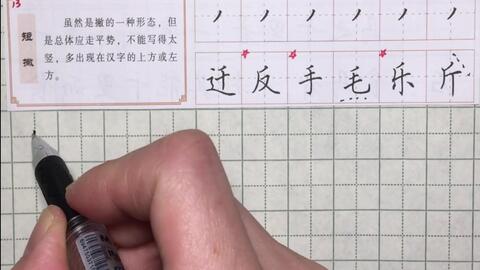 13
虽然是撇的一种形态，但
是总体应走平势，不能写得太
竖，多出现在汉字的上方或左
方。
短撇
迁反手毛乐斤